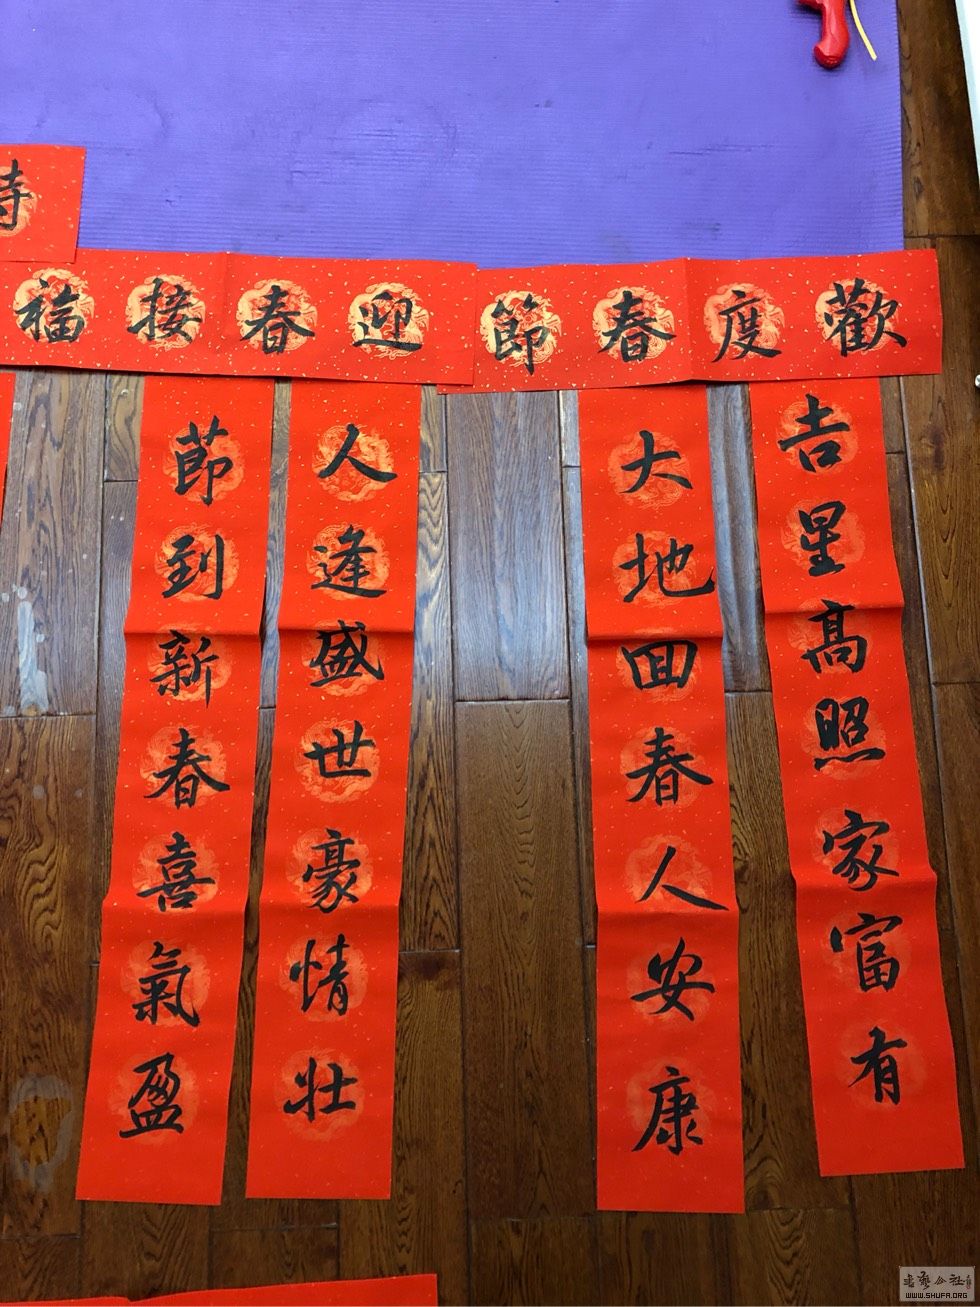 歡度春節
吉星髙照家富有
大地回春人安康
迎春接福
人逢盛世豪情壯
節到新春喜氣盈
WWW.SHUFA.ORG